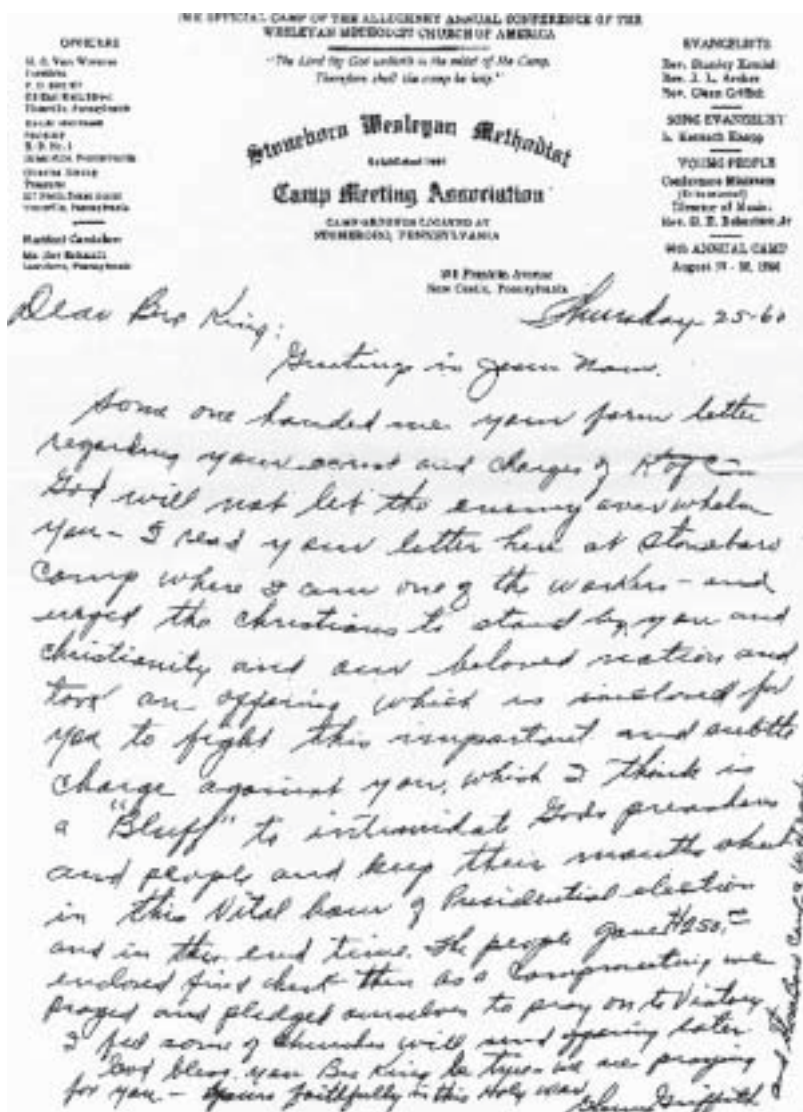 THE OFFICIAL CAMP OF THE ALLEGHENY ANNUAL CONFERENCE OF THE
WESLEYAN METHODIST CHURCH OF AMERICA
"The Lord thy God walketh in the midst of the Camp.
Therefore shall thy camp be holy."
Stoneboro Wesleyan Methodist
Established
Camp Meeting Association
CAMP GROUNDS LOCATED AT
STONEBORO, PENNSYLVANIA
OFFICERS
H. C. Van Wormer
President
Pennsylvania
Secretary
R. D. No. 1
Pennsylvania
Charles
Treasurer
Pennsylvania
Pennsylvania
EVANGELISTS
Rev. Stanley Kendall
Rev. J. L.
Rev. Glenn Griffith
SONG EVANGELIST
L. Kenneth
YOUNG PEOPLE
Conference Ministers
Director of Music
Rev. Jr
ANNUAL CAMP
August
Franklin Avenue
New Castle, Pennsylvania
Dear Bro King:
Thursday 25-60
Greetings in Jesus Name.
Some one handed me your form letter
regarding your arrest and charges of K of C
God will not let the enemy overwhelm
you - I read your letter here at Stoneboro
Camp where I am one of the workers - and
urged the Christians to stand by you and
christianity and our beloved nation and
took an offering which is inclosed for
you to fight this important and subtle
charge against you, which I think is
a "Bluff" to intimidate Gods preachers
and people and keep their mouths shut
in this Vital hour of Presidential election
and in this end time. The people gave $250.00
enclosed find check this as a Campmeeting we
prayed and pledged ourselves to pray on to Victory
I feel some of churches will send offering later
God bless you Bro King be true we are praying
for you - Yours faithfully in this Holy war
Glenn Griffith
and Stoneboro Camp